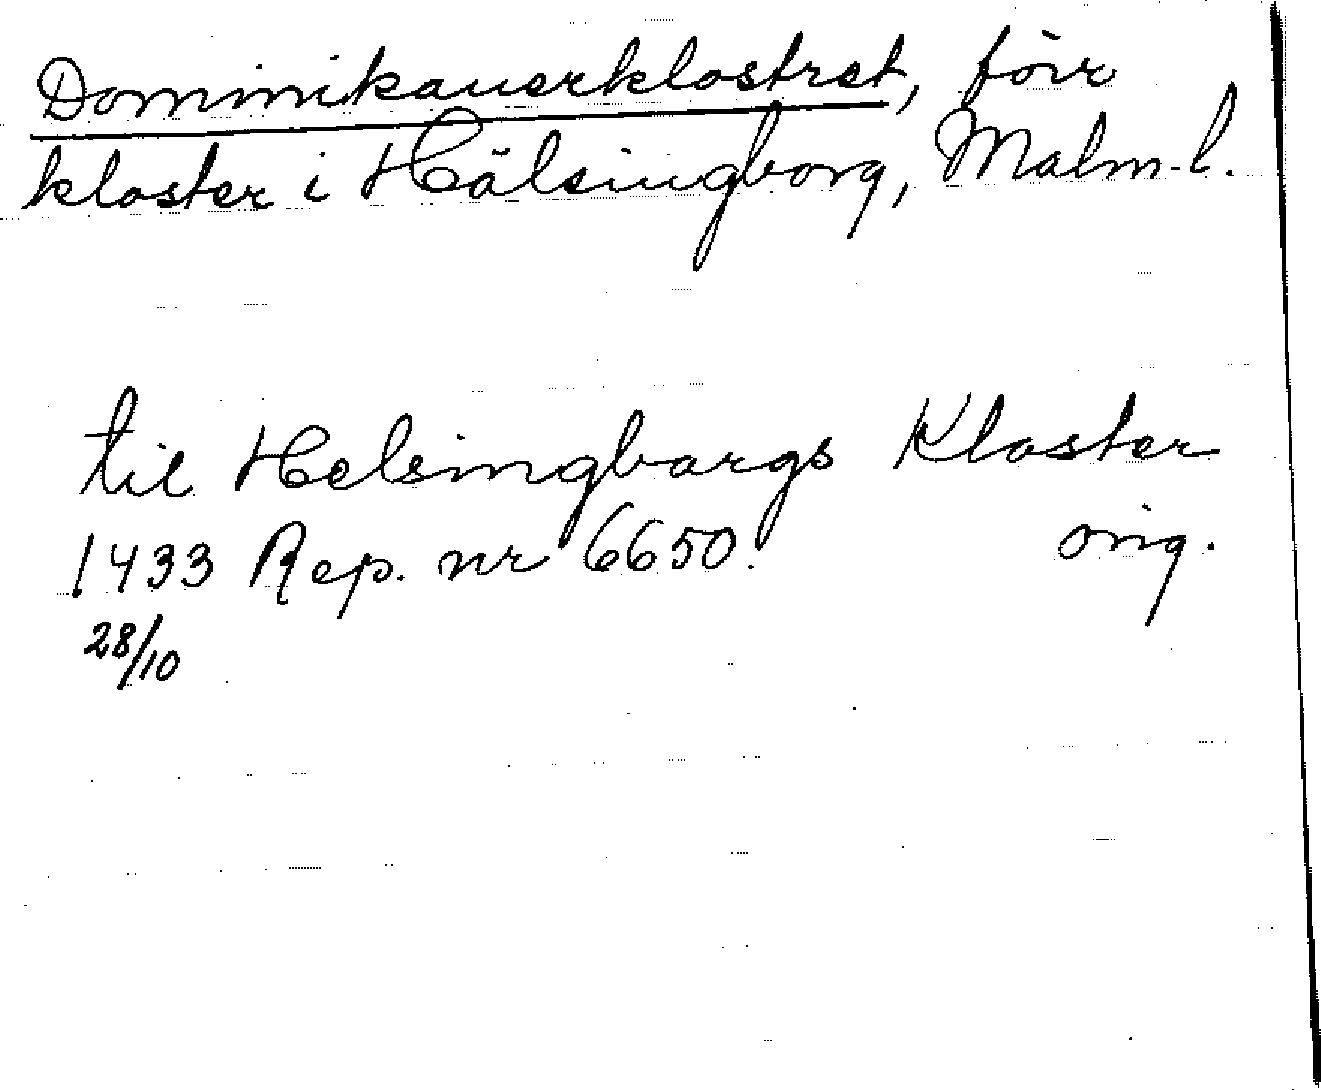 Dominikanerklostret, förr
kloster i Hälsingborg, Malm. l.
til Helsingbargs Kloster
1433 Rep. nr 6650. orig.
28/10